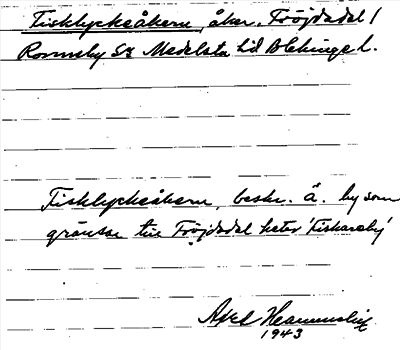 Fisklyckeåkern, åker. Fröjdadal /
Rommeby Sn Medelsta hd Blekinge l.
Fisklyckeåkern, beskr. å. by som
gränsar till Fröjdadal heter 'Fiskareby'
Axel
1943